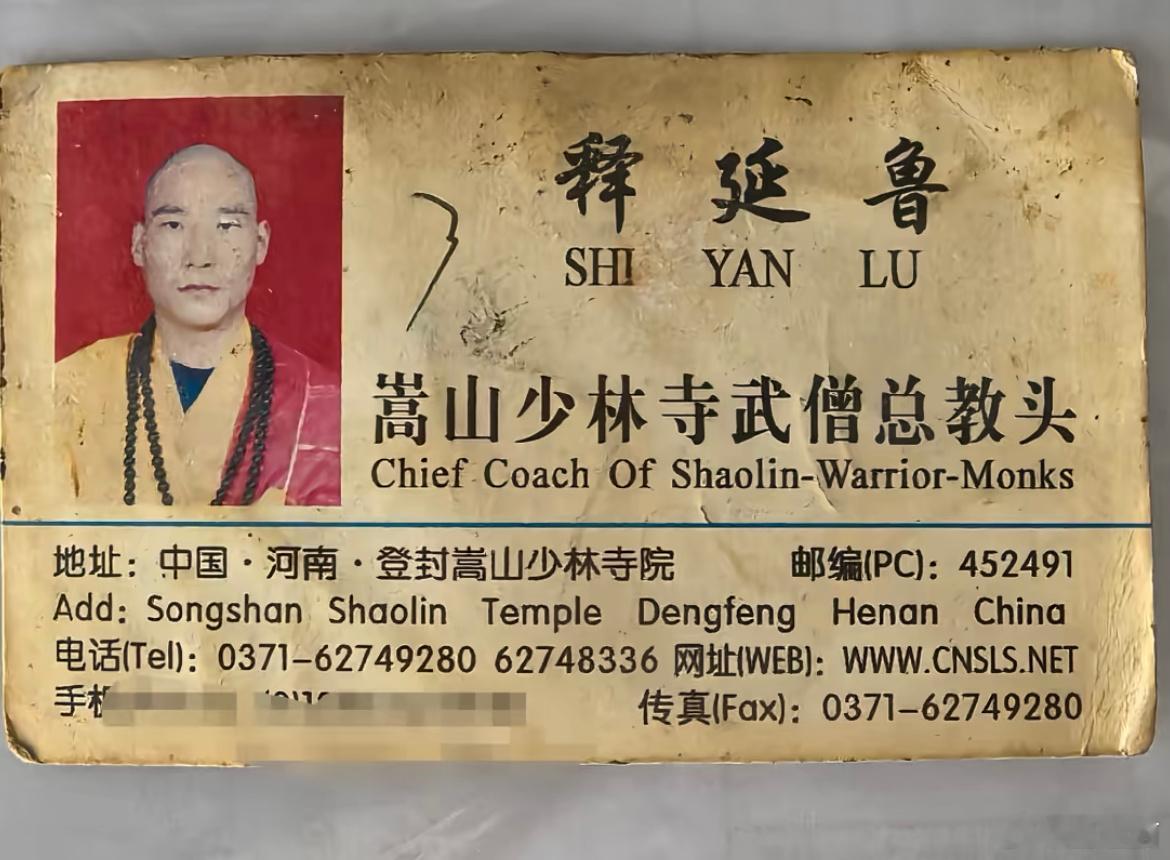 释延鲁
SHI YAN LU
嵩山少林寺武僧总教头
Chief Coach Of Shaolin-Warrior-Monks
地址：中国·河南·登封嵩山少林寺院 邮编(PC)：452491
Add: Songshan Shaolin Temple Dengfeng Henan China
电话(Tel)：0371-62749280 62748336 网址(WEB)：WWW.CNSLS.NET
手机 传真(Fax)：0371-62749280